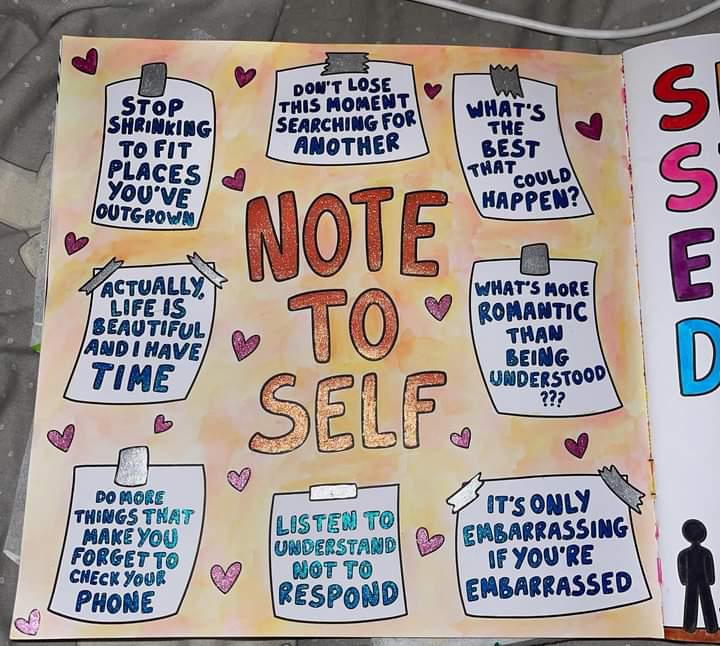 STOP
SHRINKING
TO FIT
PLACES
YOU'VE
OUTGROWN
DON'T LOSE
THIS MOMENT
SEARCHING FOR
ANOTHER
WHAT'S
THE
BEST
THAT COULD
HAPPEN?
NOTE
TO
SELF
ACTUALLY,
LIFE IS
BEAUTIFUL
AND I HAVE
TIME
WHAT'S MORE
ROMANTIC
THAN
BEING
UNDERSTOOD
???
DO MORE
THINGS THAT
MAKE YOU
FORGET TO
CHECK YOUR
PHONE
LISTEN TO
UNDERSTAND
NOT TO
RESPOND
IT'S ONLY
EMBARRASSING
IF YOU'RE
EMBARRASSED